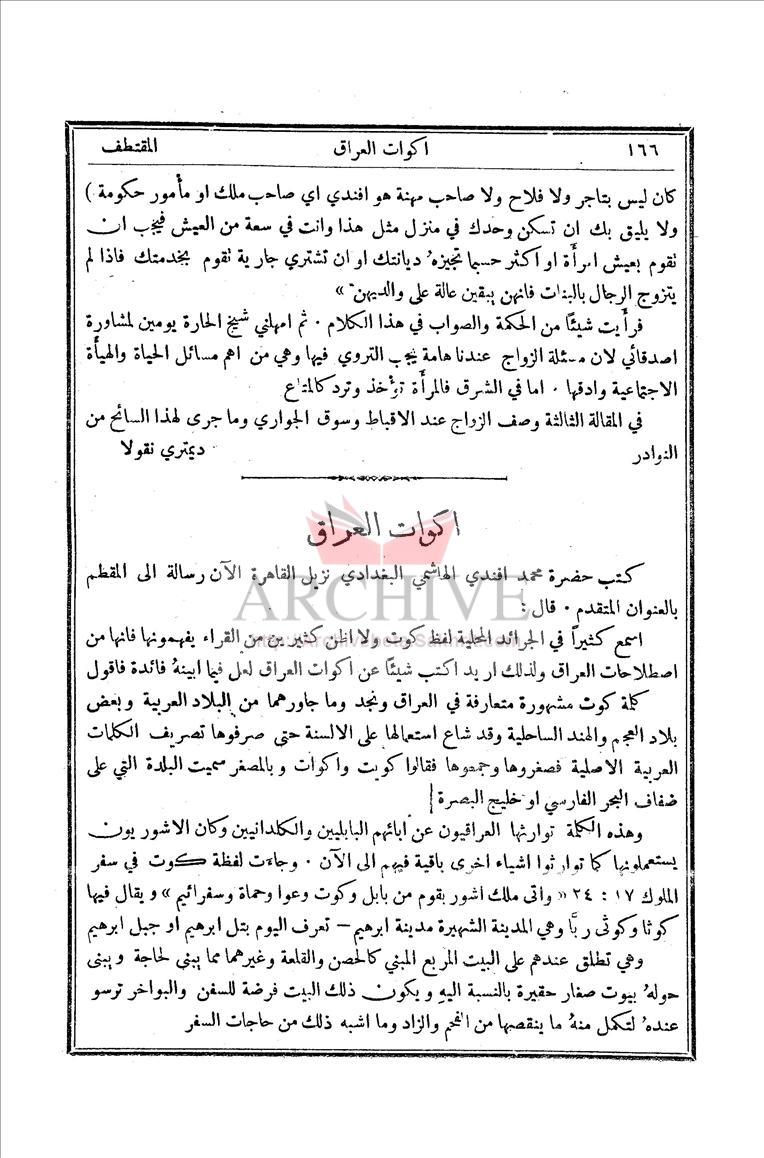 ١٦٦ اكوات العراق المقتطف
كان ليس بتاجر ولا فلاح ولا صاحب مهنة هو افندي اي صاحب ملك او مأمور حكومة )
ولا يليق بك ان تسكن وحدك في منزل مثل هذا وانت في سعة من العيش فيجب ان
تقوم بعيش امرأة او اكثر حسبما تجيزه ديانتك او ان تشتري جارية تقوم بخدمتك فاذا لم
يتزوج الرجال بالبنات فانهن يبقين عالة على والديهن »
فرأيت شيئًا من الحكمة والصواب في هذا الكلام . ثم امهلني شيخ الحارة يومين لمشاورة
اصدقائي لان مسئلة الزواج عندنا هامة يجب التروي فيها وهي من اهم مسائل الحياة والهيأة
الاجتماعية وادقها . اما في الشرق فالمرأة تؤخذ وترد كالمتاع
في المقالة الثالثة وصف الزواج عند الاقباط وسوق الجواري وما جرى لهذا السائح من
النوادر ديمتري نقولا
اكوات العراق
كتب حضرة محمد افندي الهاشمي البغدادي نزيل القاهرة الآن رسالة الى المقطم
بالعنوان المتقدم . قال :
ARCHIVE
اسمع كثيراً في الجرائد المحلية لفظ كوت ولا اظن كثيرين من القراء يفهمونها فانها من
اصطلاحات العراق ولذلك اريد اكتب شيئًا عن اكوات العراق لعل فيما ابينهُ فائدة فاقول
كلمة كوت مشهورة متعارفة في العراق ونجد وما جاورهما من البلاد العربية وبعض
بلاد العجم والهند الساحلية وقد شاع استعمالها على الالسنة حتى صرفوها تصريف الكلمات
العربية الاصلية فصغروها وجمعوها فقالوا كويت واكوات وبالمصغر سميت البلدة التي على
ضفاف البحر الفارسي او خليج البصرة
وهذه الكلمة توارثها العراقيون عن ابائهم البابليين والكلدانيين وكان الاشوريون
يستعملونها كما توارثوا اشياء اخرى باقية فيهم الى الآن . وجاءت لفظة كوت في سفر
الملوك ١٧ : ٢٤ « واتى ملك اشور بقوم من بابل وكوت وعوا وحماة وسفرائيم » ويقال فيها
كوثا وكوثى ربَّا وهي المدينة الشهيرة مدينة ابرهيم – تعرف اليوم بتل ابرهيم او جبل ابرهيم
وهي تطلق عندهم على البيت المربع المبني كالحصن والقلعة وغيرهما مما يبنى لحاجة ويبنى
حولهُ بيوت صغار حقيرة بالنسبة اليهِ ويكون ذلك البيت فرضة للسفن والبواخر ترسو
عندهُ لتكمل منهُ ما ينقصها من الفحم والزاد وما اشبه ذلك من حاجات السفر